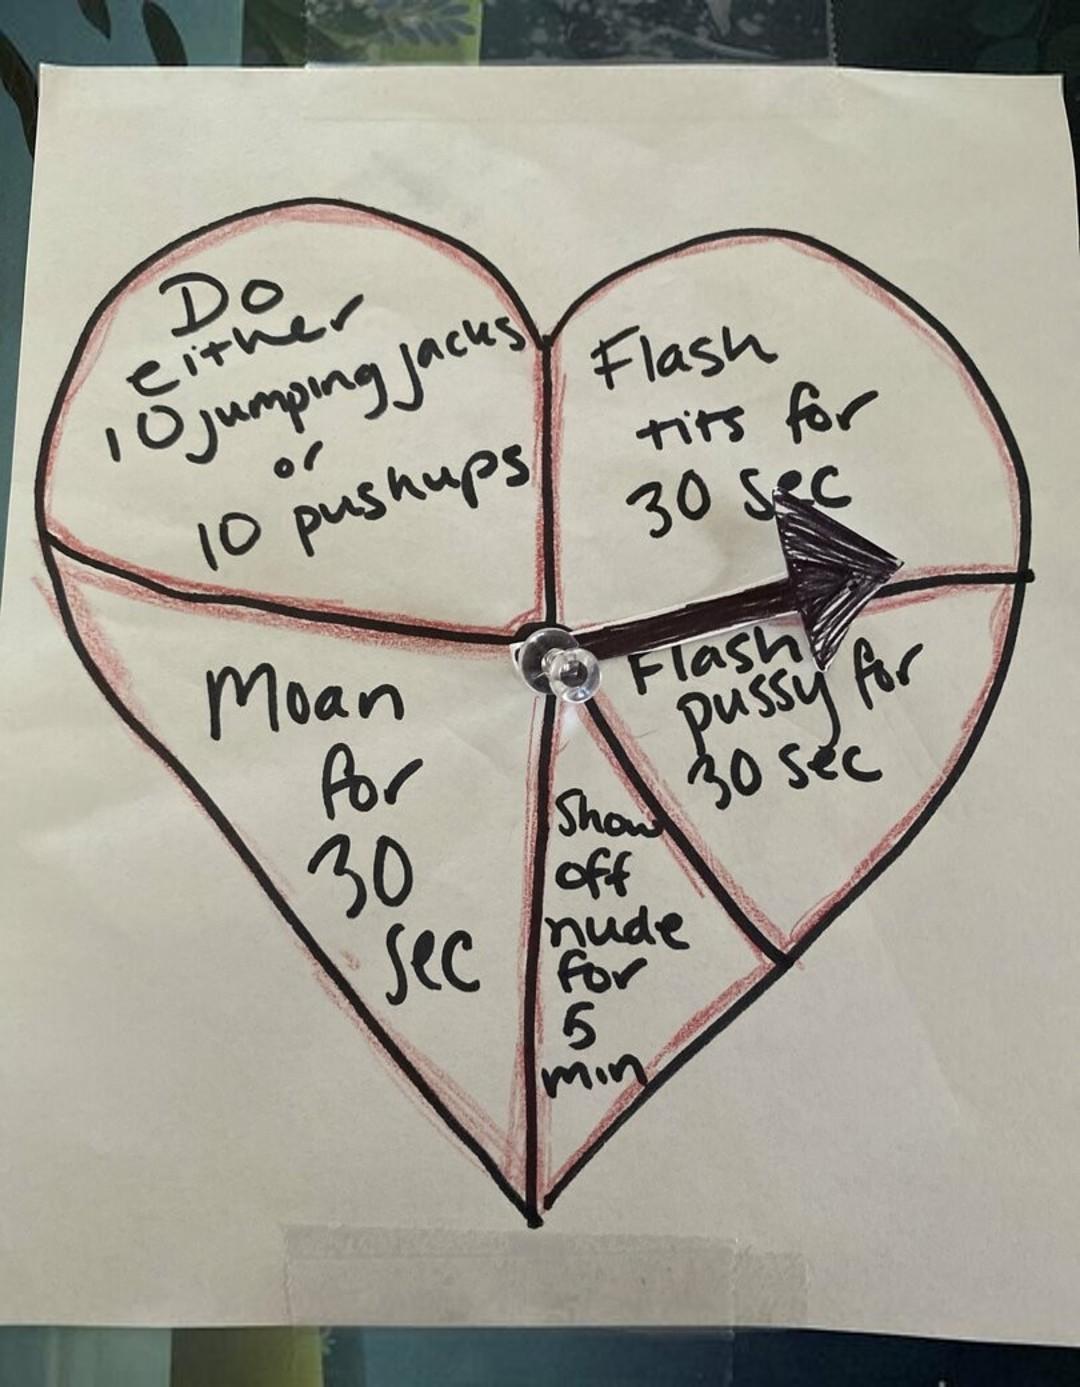 Do
either
10 jumping jacks
or
10 pushups
Flash
tits for
30 sec
Moan
for
30
sec
Show
off
nude
for
5
min
Flash
pussy for
30 sec